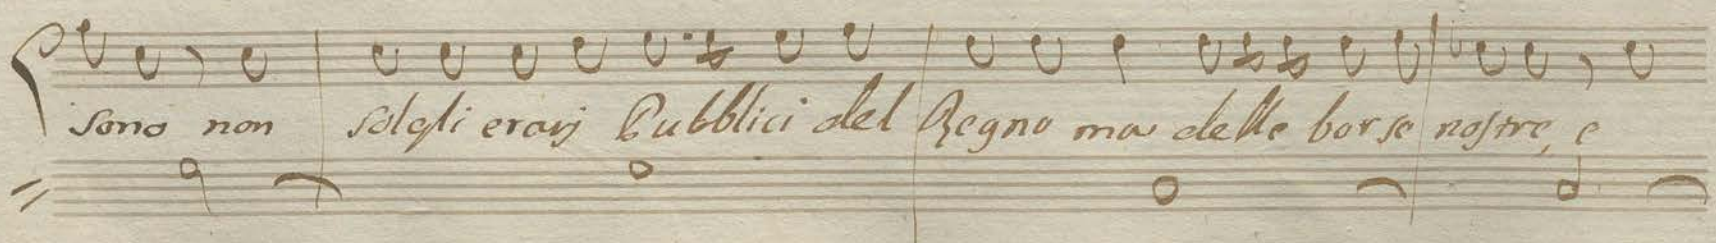 sono non sol gli erarj Pubblici del Regno ma delle borse nostre, e